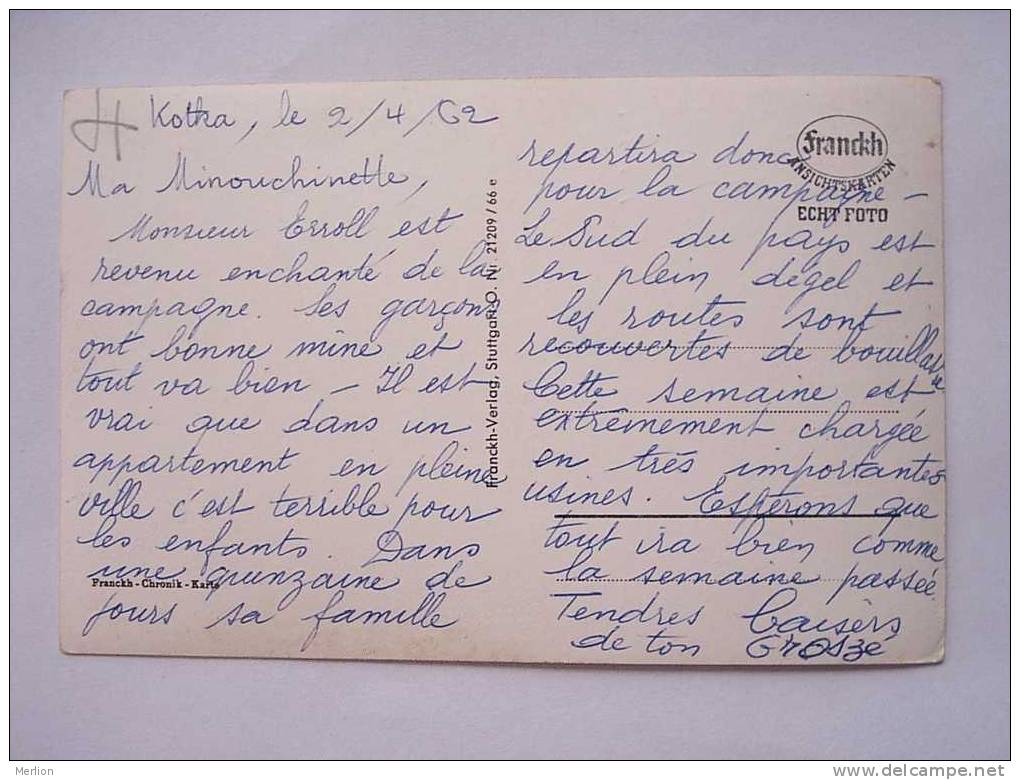 Kotka, le 2/4/62
Ma Minouchinette,
Monsieur Erroll est
revenu enchanté de la
campagne. Ses garçons
ont bonne mine et
tout va bien - Il est
vrai que dans un
appartement en pleine
ville c'est terrible pour
les enfants. Dans
une quinzaine de
jours sa famille
Franckh-Chronik-Karte
Franckh-Verlag, Stuttgart-O. Nr. 21209/66 e
Franckh
ANSICHTSKARTEN
ECHT FOTO
repartira donc
pour la campagne -
Le Sud du pays est
en plein dégel et
les routes sont
recouvertes de bouillasse
Cette semaine est
extrêmement chargée
en très importantes
usines. Espérons que
tout ira bien comme
la semaine passée.
Tendres baisers
de ton
Merlion
delcampe.net